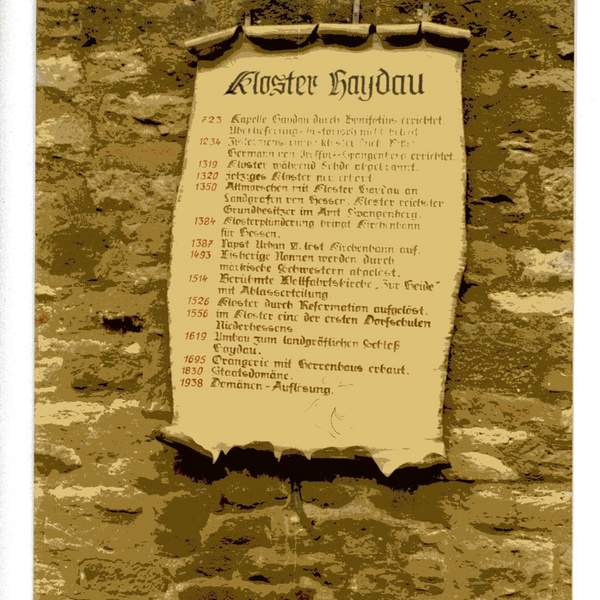 Kloster Haydau
723 Kapelle Haydau durch Bonifatius errichtet.
Überlieferung historisch nicht belegt.
1234
Hermann von Treffurt-Spangenberg errichtet.
1319 Kloster während Fehde abgebrannt.
1320 jetziges Kloster neu erbaut.
1350 Altmorschen mit Kloster Haydau an
Landgrafen von Hessen. Kloster reichster
Grundbesitzer im Amt Spangenberg.
1384 Klosterplünderung bringt Kirchenbann
für Hessen.
1387 Papst Urban VI. löst Kirchenbann auf.
1493 Bisherige Nonnen werden durch
märkische Schwestern abgelöst.
1514 Berühmte Wallfahrtskirche „Zur Heide“
mit Ablasserteilung
1526 Kloster durch Reformation aufgelöst.
1556 im Kloster eine der ersten Dorfschulen
Niederhessens
1619 Umbau zum landgräflichen Schloß
Haydau.
1695 Orangerie mit Herrenhaus erbaut.
1830 Staatsdomäne.
1938 Domänen-Auflösung.